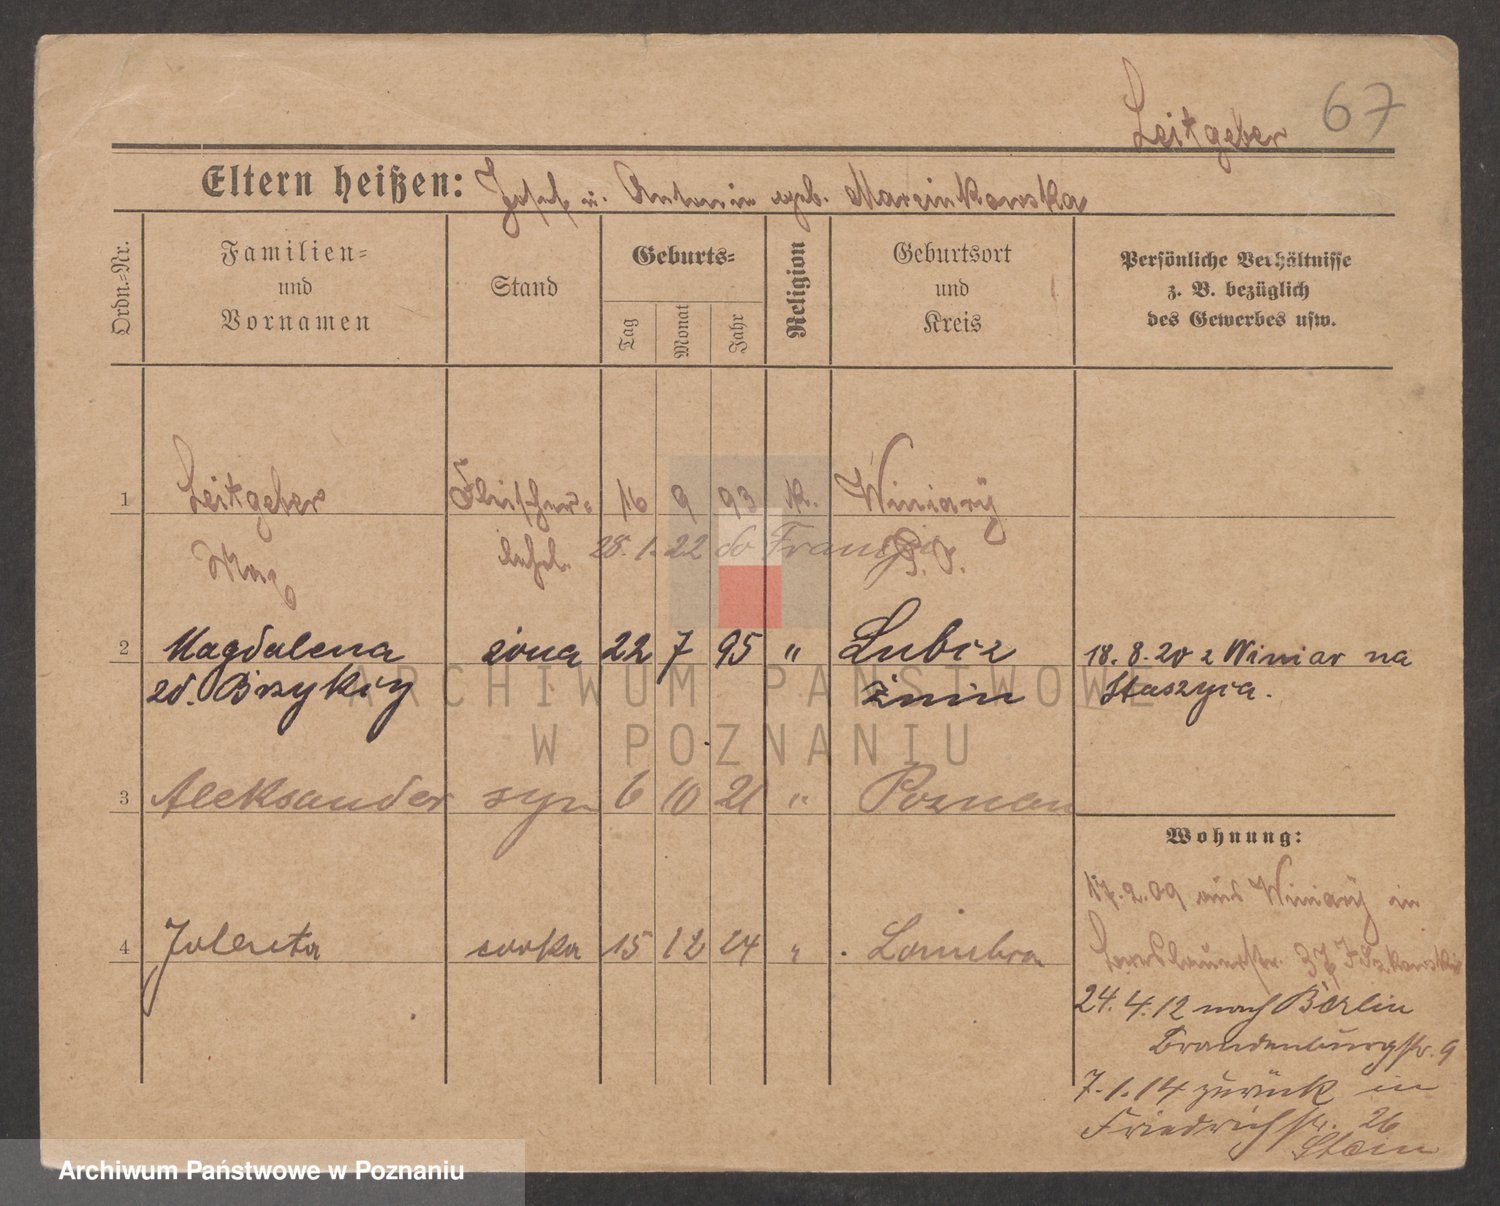 Leitgeber 67
Eltern heißen: Josef u. Antonie geb. Marcinkowska
Ordn.=Nr.
Familien=
und
Vornamen
Stand
Geburts=
Tag
Monat
Jahr
Religion
Geburtsort
und
Kreis
Persönliche Verhältnisse
z. B. bezüglich
des Gewerbes usw.
1 Leitgeber Fleischer= 16 9 93 k. Winiary
Max lehrl. P. O.
28. 1. 22 do Francji
2 Magdalena żona 22 7 95 " 18. 8. 20 z Winiar na
zd. Brzykcy Żnin Staszyca.
3 Aleksander syn 6 10 21 " Poznań
4 Jolenta córka 15 12 24 "
Wohnung:
17. 2. 09 aus Winiary in
37
24. 4. 12 nach Berlin
Brandenburgstr. 9
7. 1. 14 zurück in
Friedrichstr. 26
Stein
ARCHIWUM PAŃSTWOWE
W POZNANIU
Archiwum Państwowe w Poznaniu